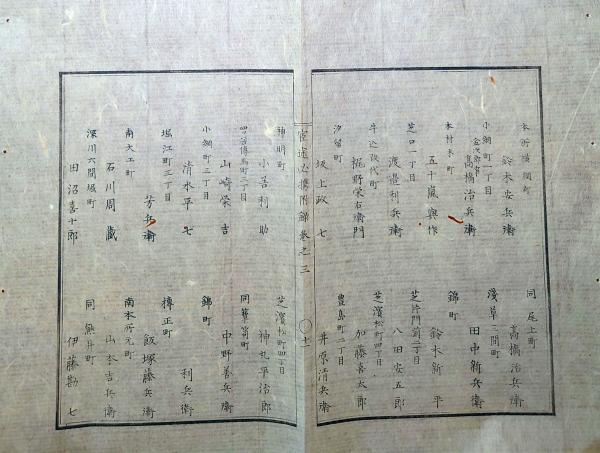 本所横網町
鈴木安兵衞
小網町一丁目
金次郎事
高橋治兵衞
本材木町
五十嵐與作
芝口一丁目
渡邉利兵衞
牛込改代町
堀野栄右衞門
汐留町
坂上政七
同尾上町
高橋治兵衞
淺草三間町
田中新兵衞
錦町
鈴木新平
芝片門前二丁目
八田安五郎
芝濱松町四丁目
加藤喜太郎
豊島町二丁目
井原清兵衞
官途必攜附録巻之三
〇十
神明町
小善利助
四谷傳馬町二丁目
山崎栄吉
小網町三丁目
清水平七
堀江町三丁目
芳兵衞
南大工町
石川周藏
深川六間堀町
田沼喜十郎
芝濱松町四丁目
神丸平治郎
同簞笥町
中野善兵衞
錦町
利兵衞
檜正町
飯塚藤兵衞
南本所元町
山本吉兵衞
同龜井町
伊藤勘七